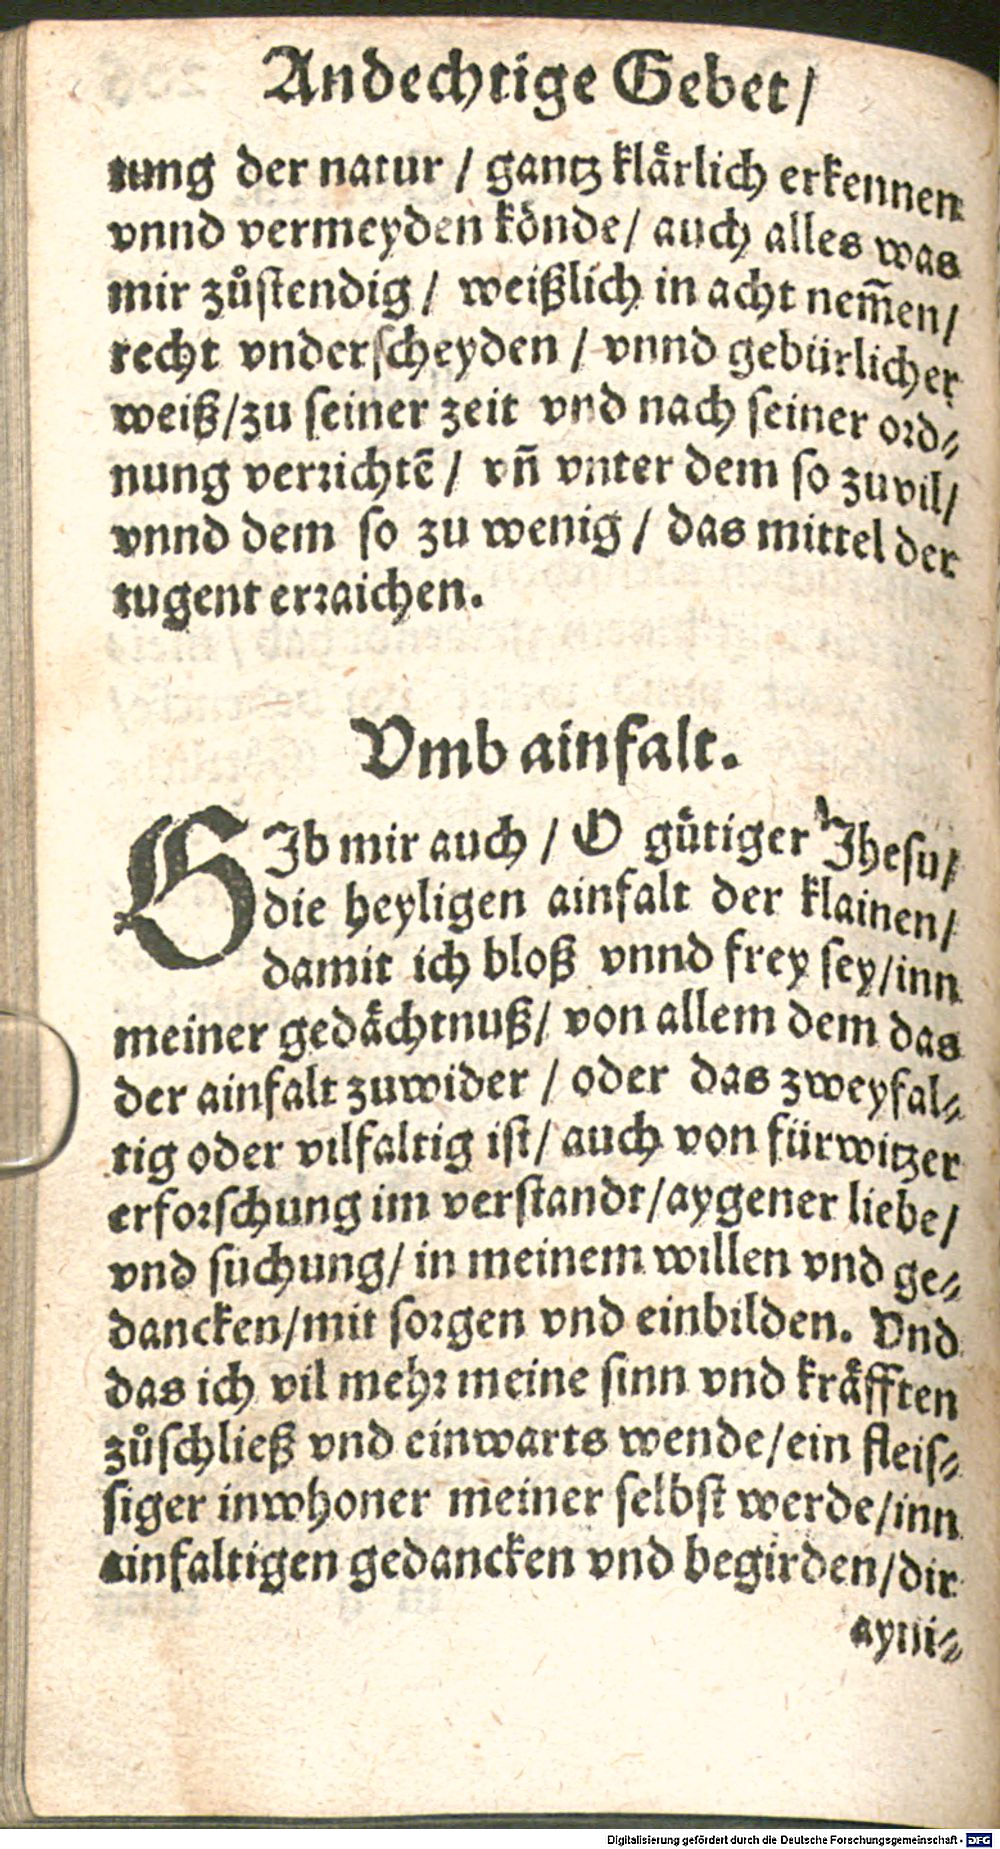 Andechtige Gebet/
tung der natur / gantz klårlich erkennen
vnnd vermeyden kônde/ auch alles was
mir zůstendig / weißlich in acht nem̃en/
recht vnderscheyden / vnnd gebürlicher
weiß/zu seiner zeit vnd nach seiner ord⸗
nung verrichtē / vñ vnter dem so zuvil/
vnnd dem so zu wenig / das mittel der
tugent erraichen.
Vmb ainfalt.
GIb mir auch / O gůtiger Jhesu/
die heyligen ainfalt der klainen/
damit ich bloß vnnd frey sey/inn
meiner gedåchtnuß/ von allem dem das
der ainfalt zuwider / oder das zweyfal⸗
tig oder vilfaltig ist/ auch von fürwitzer
erforschung im verstandt/aygener liebe/
vnd suchung/ in meinem willen vnd ge⸗
dancken/mit sorgen vnd einbilden. Vnd
das ich vil mehr meine sinn vnd kråfften
zůschließ vnd einwarts wende/ein fleis⸗
siger inwhoner meiner selbst werde/inn
ainfaltigen gedancken vnd begirden/dir
ayni⸗
Digitalisierung gefördert durch die Deutsche Forschungsgemeinschaft - DFG